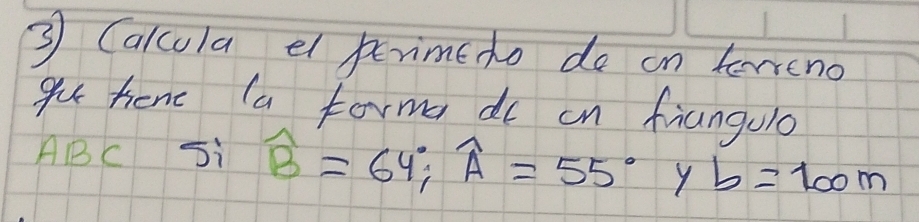 3) Calcula el perimetro de un terreno
que tiene la forma de un triangulo
ABC Si B̂ = 64°; Â = 55° y b = 100m